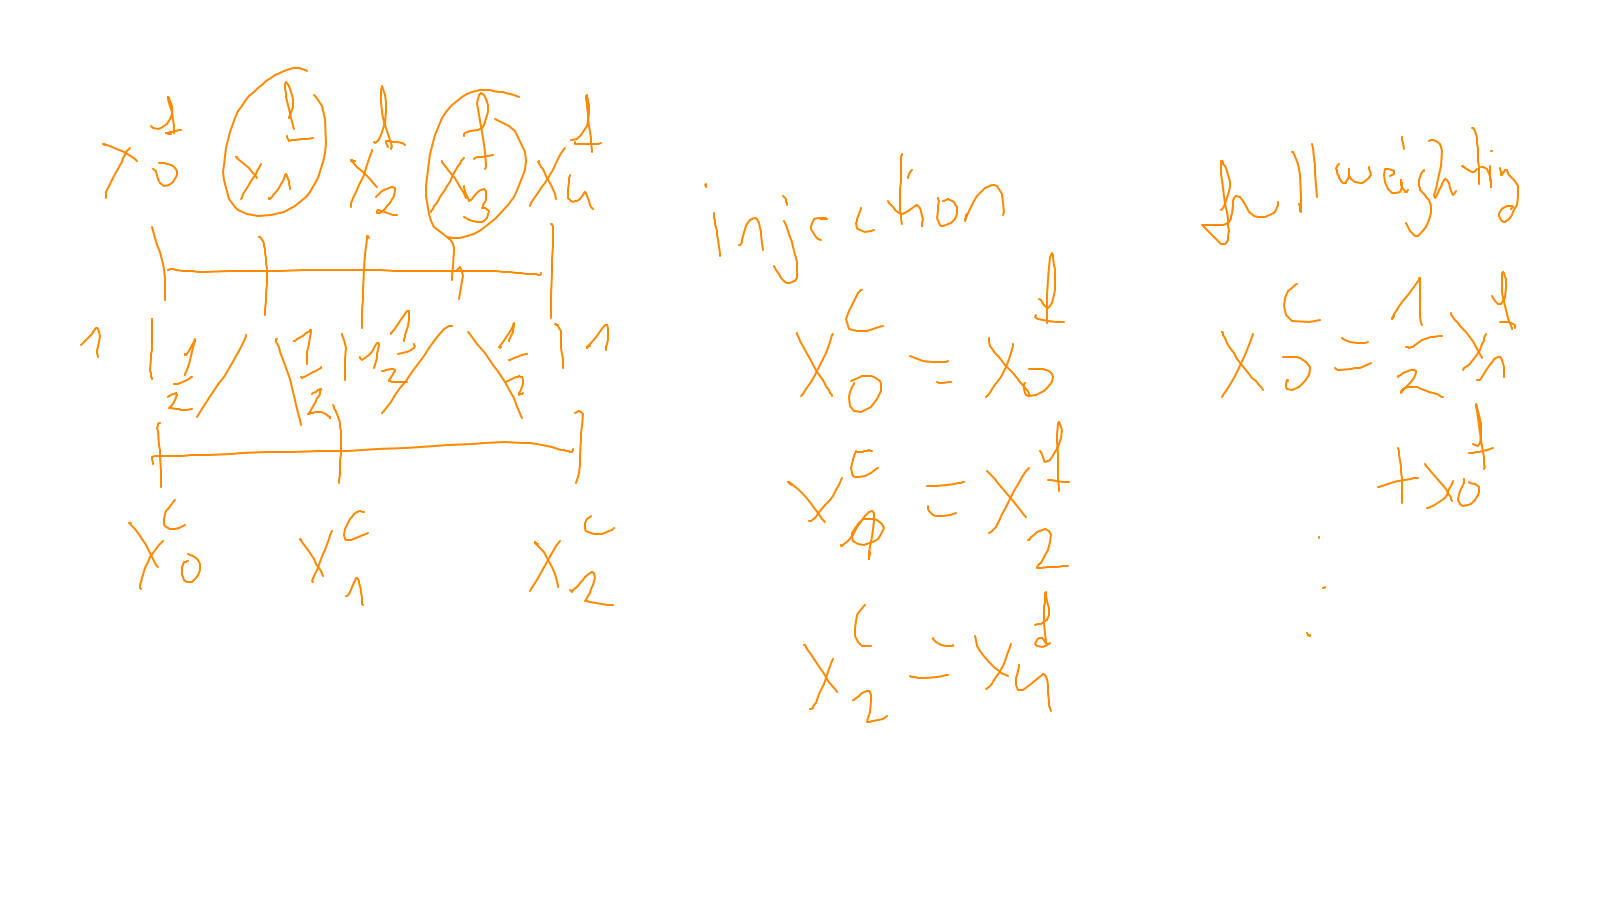 x₀ᶠ x₁ᶠ x₂ᶠ x₃ᶠ x₄ᶠ
1 1/2 1/2 1 1/2 1/2 1
x₀ᶜ x₁ᶜ x₂ᶜ
injection
x₀ᶜ = x₀ᶠ
x₁ᶜ = x₂ᶠ
x₂ᶜ = x₄ᶠ
fullweighting
x₀ᶜ = 1/2 x₁ᶠ
+ x₀ᶠ
⋮